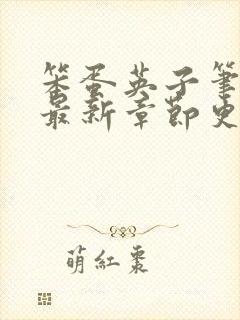 笨蛋英子筆
最新章節史
萌紅棗